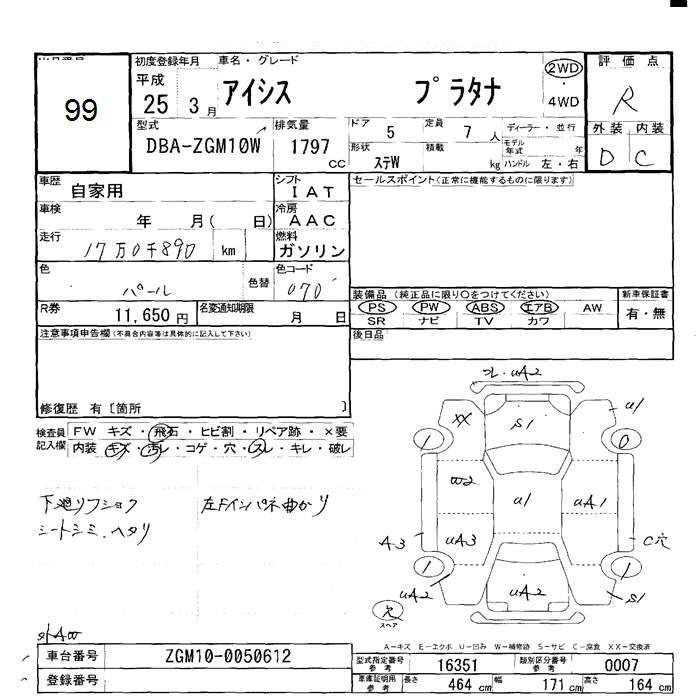 99
初度登録年月 車名・グレード
平成
25 3月 アイシス プラタナ
2WD
・
4WD
評価点
R
外装 内装
D C
型式
DBA-ZGM10W
排気量
1797 cc
ドア 5
定員 7 人
形状 ステW
積載 kg
ディーラー・並行
モデル年式 年
ハンドル 左・右
車歴 自家用
シフト
IAT
車検 年 月( 日)
冷房
AAC
走行 17万0千890 km
燃料
ガソリン
色 パール 色替
色コード
070
R券 11,650 円
名変通知期限 月 日
セールスポイント(正常に機能するものに限ります)
装備品(純正品に限り○をつけてください)
PS ・ PW ・ ABS ・ エアB ・ AW
SR ナビ TV カワ
新車保証書
有・無
後日品
注意事項申告欄(不具合内容等は具体的に記入して下さい)
修復歴 有〔箇所 〕
検査員記入欄
FW キズ・飛石・ヒビ割・リペア跡・×要
内装 キズ・汚レ・コゲ・穴・スレ・キレ・破レ
シートシミ、ヘタリ
左Fインパネ曲がり
uA2
XX
S1
u1
W2
u1
uA1
uA3
A3
C穴
uA2
uA2
S1
欠
スペア
A-キズ E-エクボ U-凹み W-補修跡 S-サビ C-腐食 XX-交換済
車台番号 ZGM10-0050612
登録番号
型式指定番号 参考 16351
類別区分番号 参考 0007
車庫証明用 参考 長さ 464 cm 幅 171 cm 高さ 164 cm